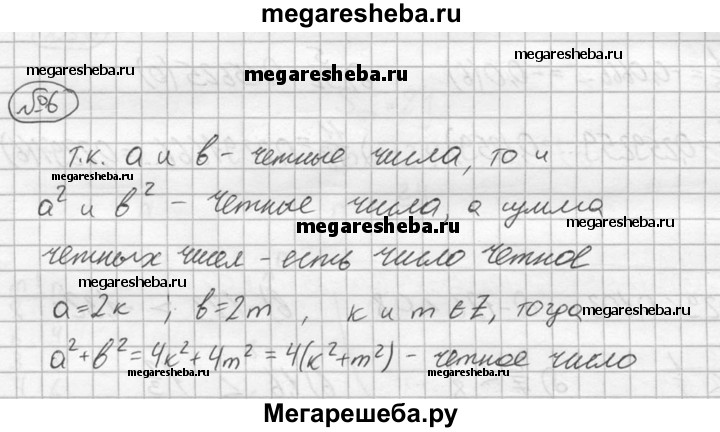 megaresheba.ru
megaresheba.ru
megaresheba.ru
megaresheba.ru
№6
т.к. a и b - четные числа, то и
megaresheba.ru
a² и b² - четные числа, а сумма
megaresheba.ru
четных чисел - есть число четное
megaresheba.ru
a=2к ; b=2m, к и m ∈ Z, тогда
megaresheba.ru
a²+b²=4к²+4m²=4(к²+m²) - четное число
megaresheba.ru
megaresheba.ru
Мегарешеба.ру